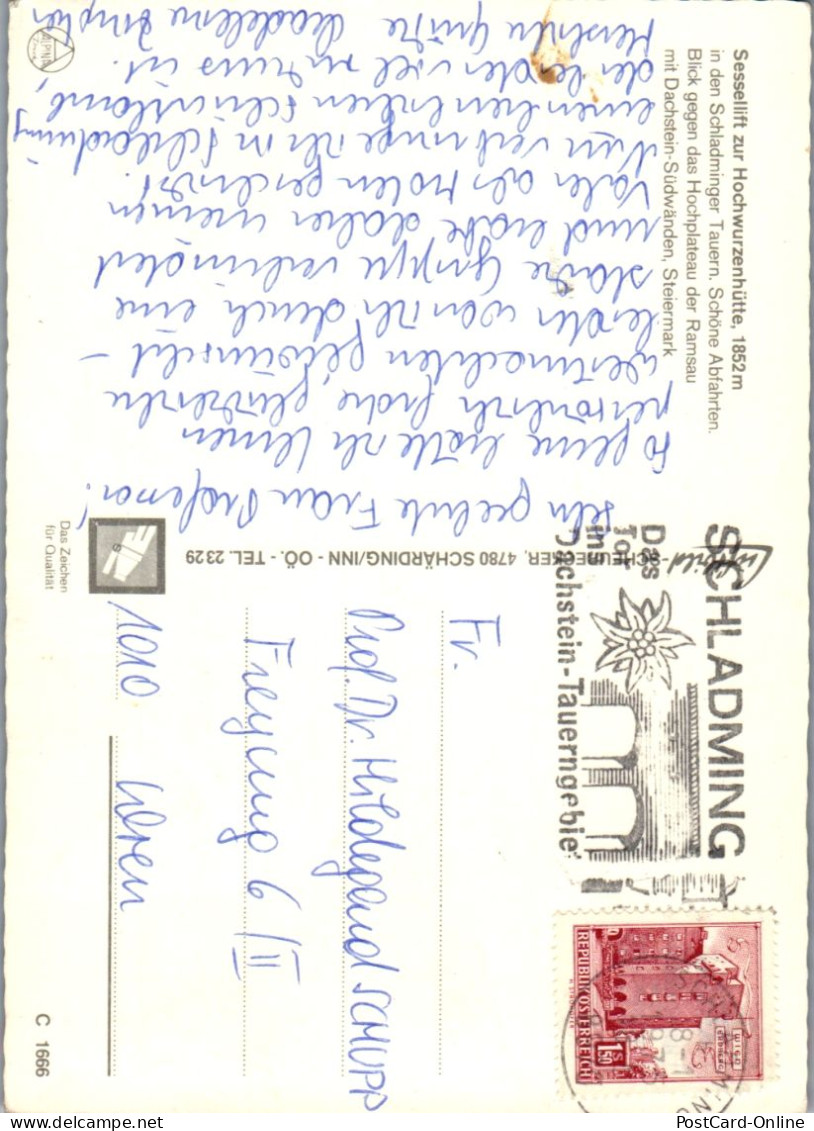 Sessellift zur Hochwurzenhütte, 1852 m
in den Schladminger Tauern. Schöne Abfahrten.
Blick gegen das Hochplateau der Ramsau
mit Dachstein-Südwänden, Steiermark
ALPINA
Sehr geehrte Frau Professor!
So gerne hätte ich Ihnen
persönlich frohe, glückliche
Weihnachten gewünscht -
leider war ich durch eine
starke Grippe verhindert
und habe daher meinen
Vater als Boten geschickt.
Nun verbringe ich in Schladming
einen herrlichen Schiurlaub,
der leider viel zu kurz ist.
Herzliche Grüße Madeleine
-SCHEUBECKER, 4780 SCHÄRDING/INN - OÖ. - TEL. 23 29
Das Zeichen
für Qualität
SCHLADMING
Das
Tor
ins
Dachstein-Tauerngebie
REPUBLIK ÖSTERREICH
S 1.50
WIEN
Fr.
Prof. Dr. Hildegard SCHUPP
Freyung 6/II
1010 Wien
C 1666
PostCard-Online